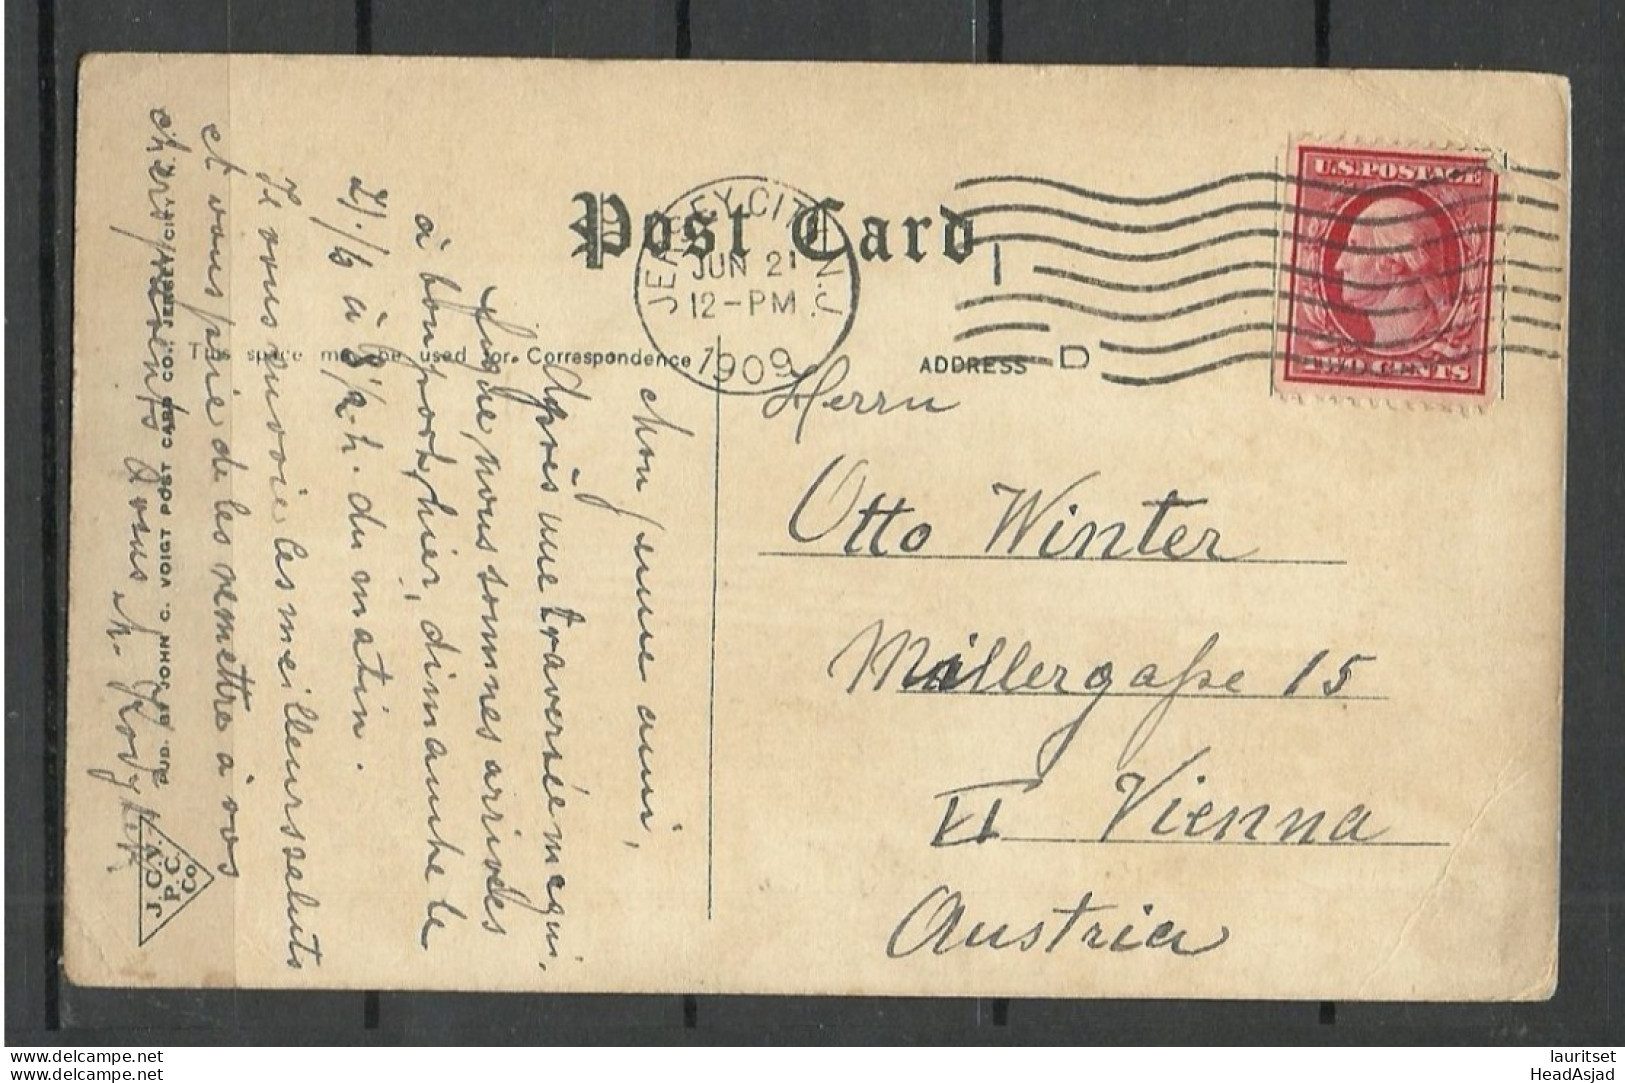 Post Card
JERSEY CITY, N.J.
JUN 21
12-PM
1909
U.S. POSTAGE
TWO CENTS
This space may be used for Correspondence
ADDRESS
D
Herrn
Otto Winter
Millergaße 15
VI Vienna
Austria
Mon jeune ami,
Après une traversée
nous sommes arrivés
à bon port, hier, dimanche le
à 8 1/2 h. du matin.
Je vous envoie les meilleurs saluts
et vous prie de les remettre à vos
chers parents
PUB. BY JOHN C. VOIGT POST CARD CO., JERSEY CITY, N.J.
J.C.V.
P.C.
Co.
www.delcampe.net
www.delcampe.net
lauritset
HeadAsjad